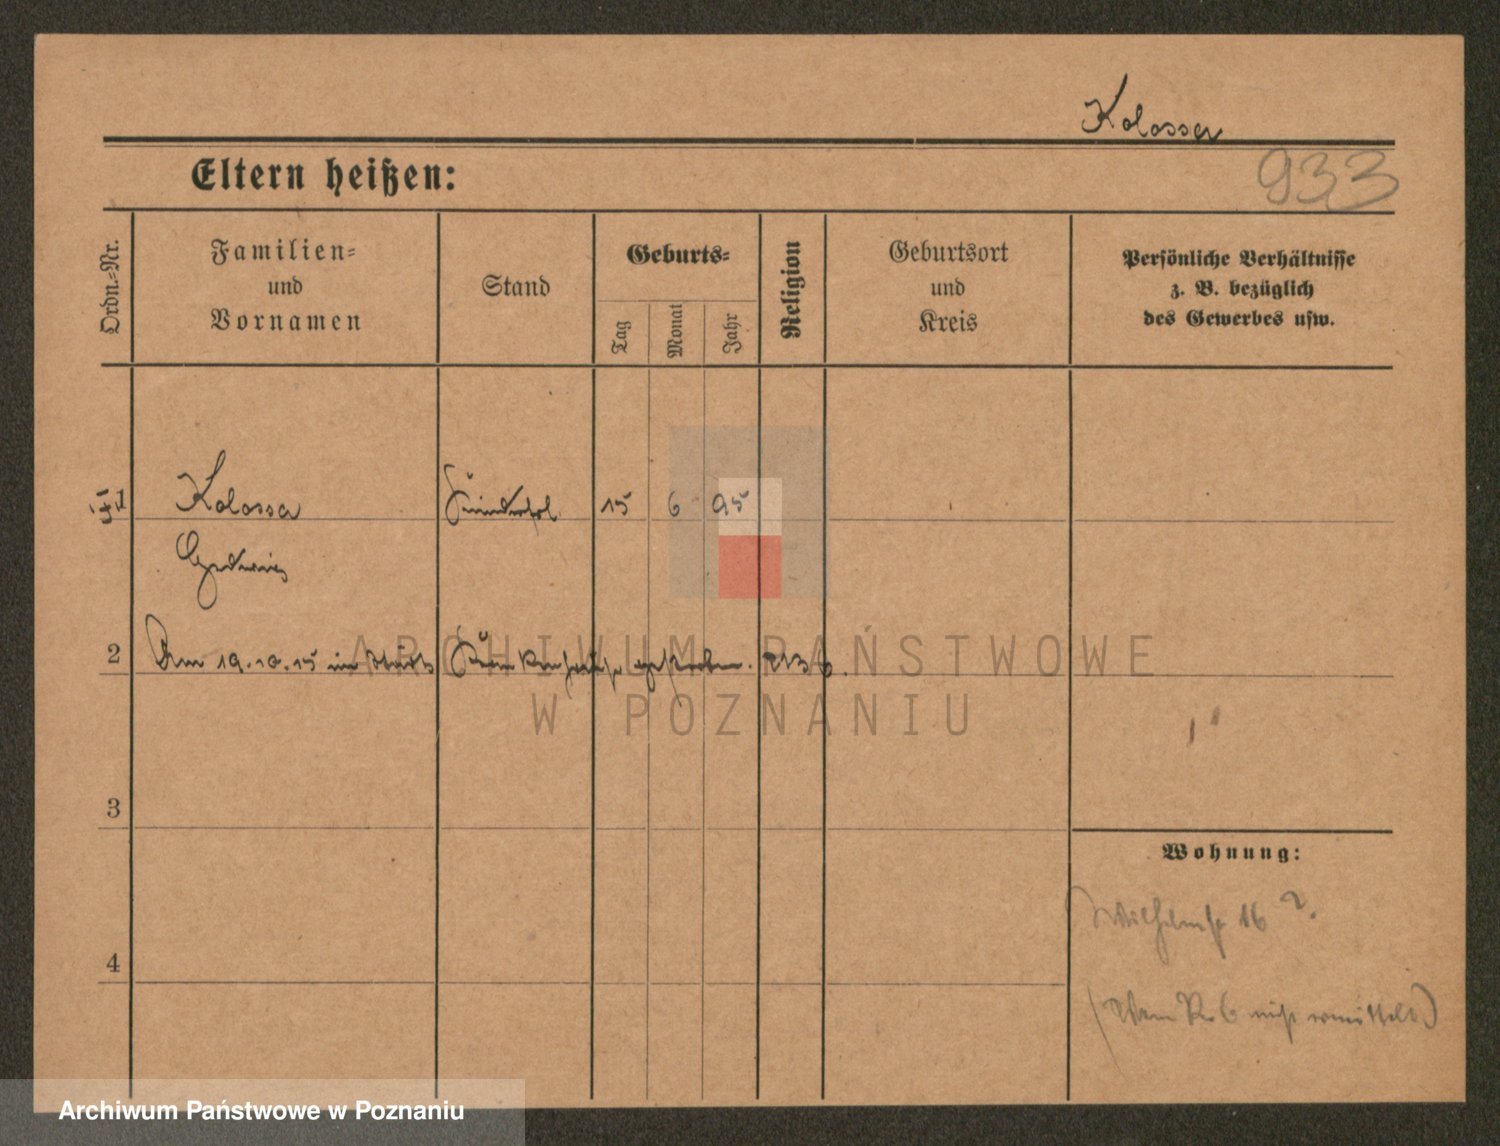 Kolossa
933
Eltern heißen:
Ordn.=Nr.
Familien=
und
Vornamen
Stand
Geburts=
Tag
Monat
Jahr
Religion
Geburtsort
und
Kreis
Persönliche Verhältnisse
z. B. bezüglich
des Gewerbes usw.
1 Kolossa 15 6 95
Hedwig
2 Am 19.10.15 im städt. Krankenhause gestorben.
3
4
Wohnung:
Wilhelmstr 16 ?
(Vom R. 6 nicht ermittelt)
ARCHIWUM PAŃSTWOWE
W POZNANIU
Archiwum Państwowe w Poznaniu